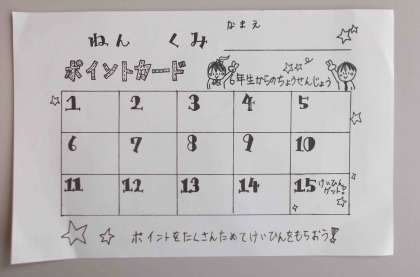 なまえ
ねん くみ
ポイントカード
6年生からのちょうせんじょう
1 2 3 4 5
6 7 8 9 10
11 12 13 14 15 けいひんゲット!
ポイントをたくさんためてけいひんをもらおう!